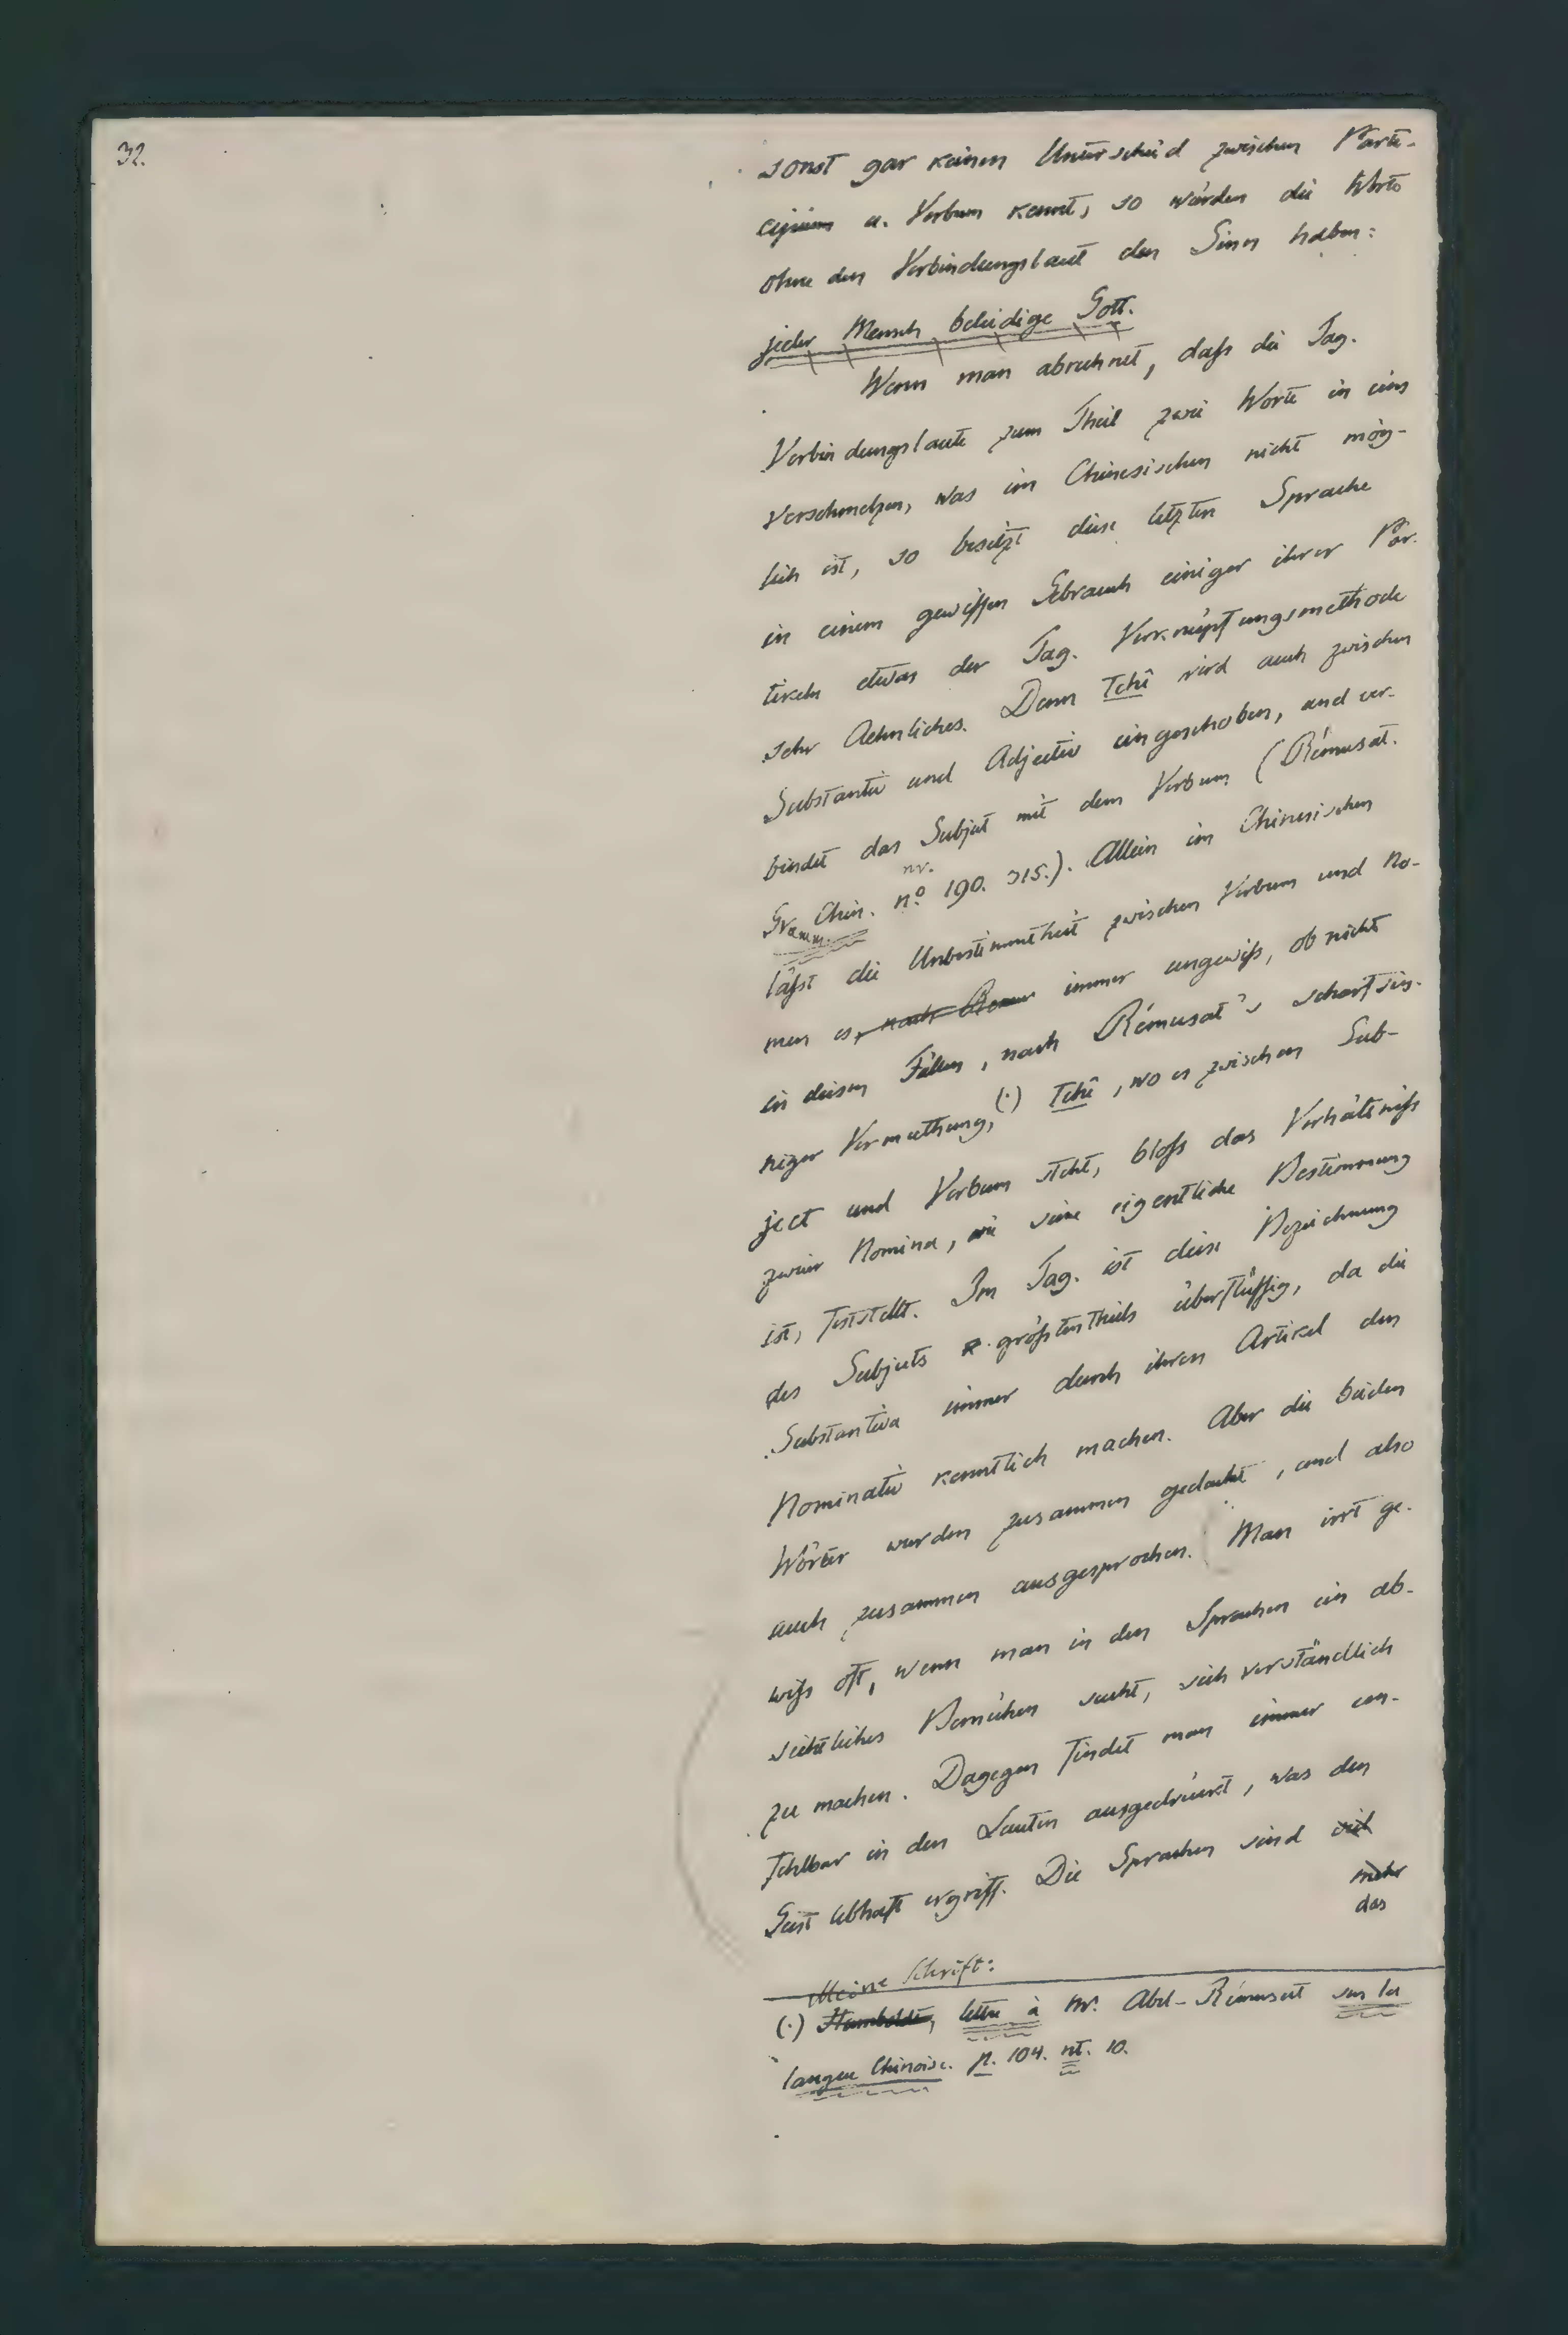 32.
sonst gar keinen Unterschied zwischen Parti-
cipium u. Verbum kennt, so würden die Worte
ohne den Verbindungslaut den Sinn haben:
jeder Mensch beleidige Gott.
Wenn man abrechnet, daſs die Tag.
Verbindungslaute zum Theil zwei Worte in eins
verschmelzen, was im Chinesischen nicht mög-
lich ist, so besitzt diese letzten Sprache
in einem gewiſsen Gebrauch einiger ihrer Par-
tikeln etwas der Tag. Verknüpfungsmethode
sehr Aehnliches. Denn Tchî wird auch zwischen
Substantiv und Adjectiv eingeschoben, und ver-
bindet das Subject mit dem Verbum (Rémusat.
nr.
Gramm. Chin. nº 190. 315.). Allein im Chinesischen
läſst die Unbestimmtheit zwischen Verbum und No-
men es, nach Remu immer ungewiſs, ob nicht
in diesen Fällen, nach Rémusat's scharfsin-
niger Vermuthung, (·) Tchî, wo es zwischen Sub-
ject und Verbum steht, bloſs das Verhältniſs
zweier Nomina, wie seine eigentliche Bestimmung
ist, feststellt. Im Tag. ist diese Bezeichnung
des Subjects gröſstentheils überflüſsig, da die
Substantiva immer durch ihren Artikel den
Nominativ kenntlich machen. Aber die beiden
Wörter werden zusammen gedacht, und also
auch zusammen ausgesprochen. Man irrt ge-
wiſs oft, wenn man in den Sprachen ein ab-
sichtliches Bemühen sucht, sich verständlich
zu machen. Dagegen findet man immer un-
fehlbar in den Lauten ausgedrückt, was den
Geist lebhaft ergriff. Die Sprachen sind viel
mehr
das
Meine Schrift:
(·) Humboldt, lettre à Mr. Abel-Rémusat sur la
langue Chinoise. p. 104. nt. 10.